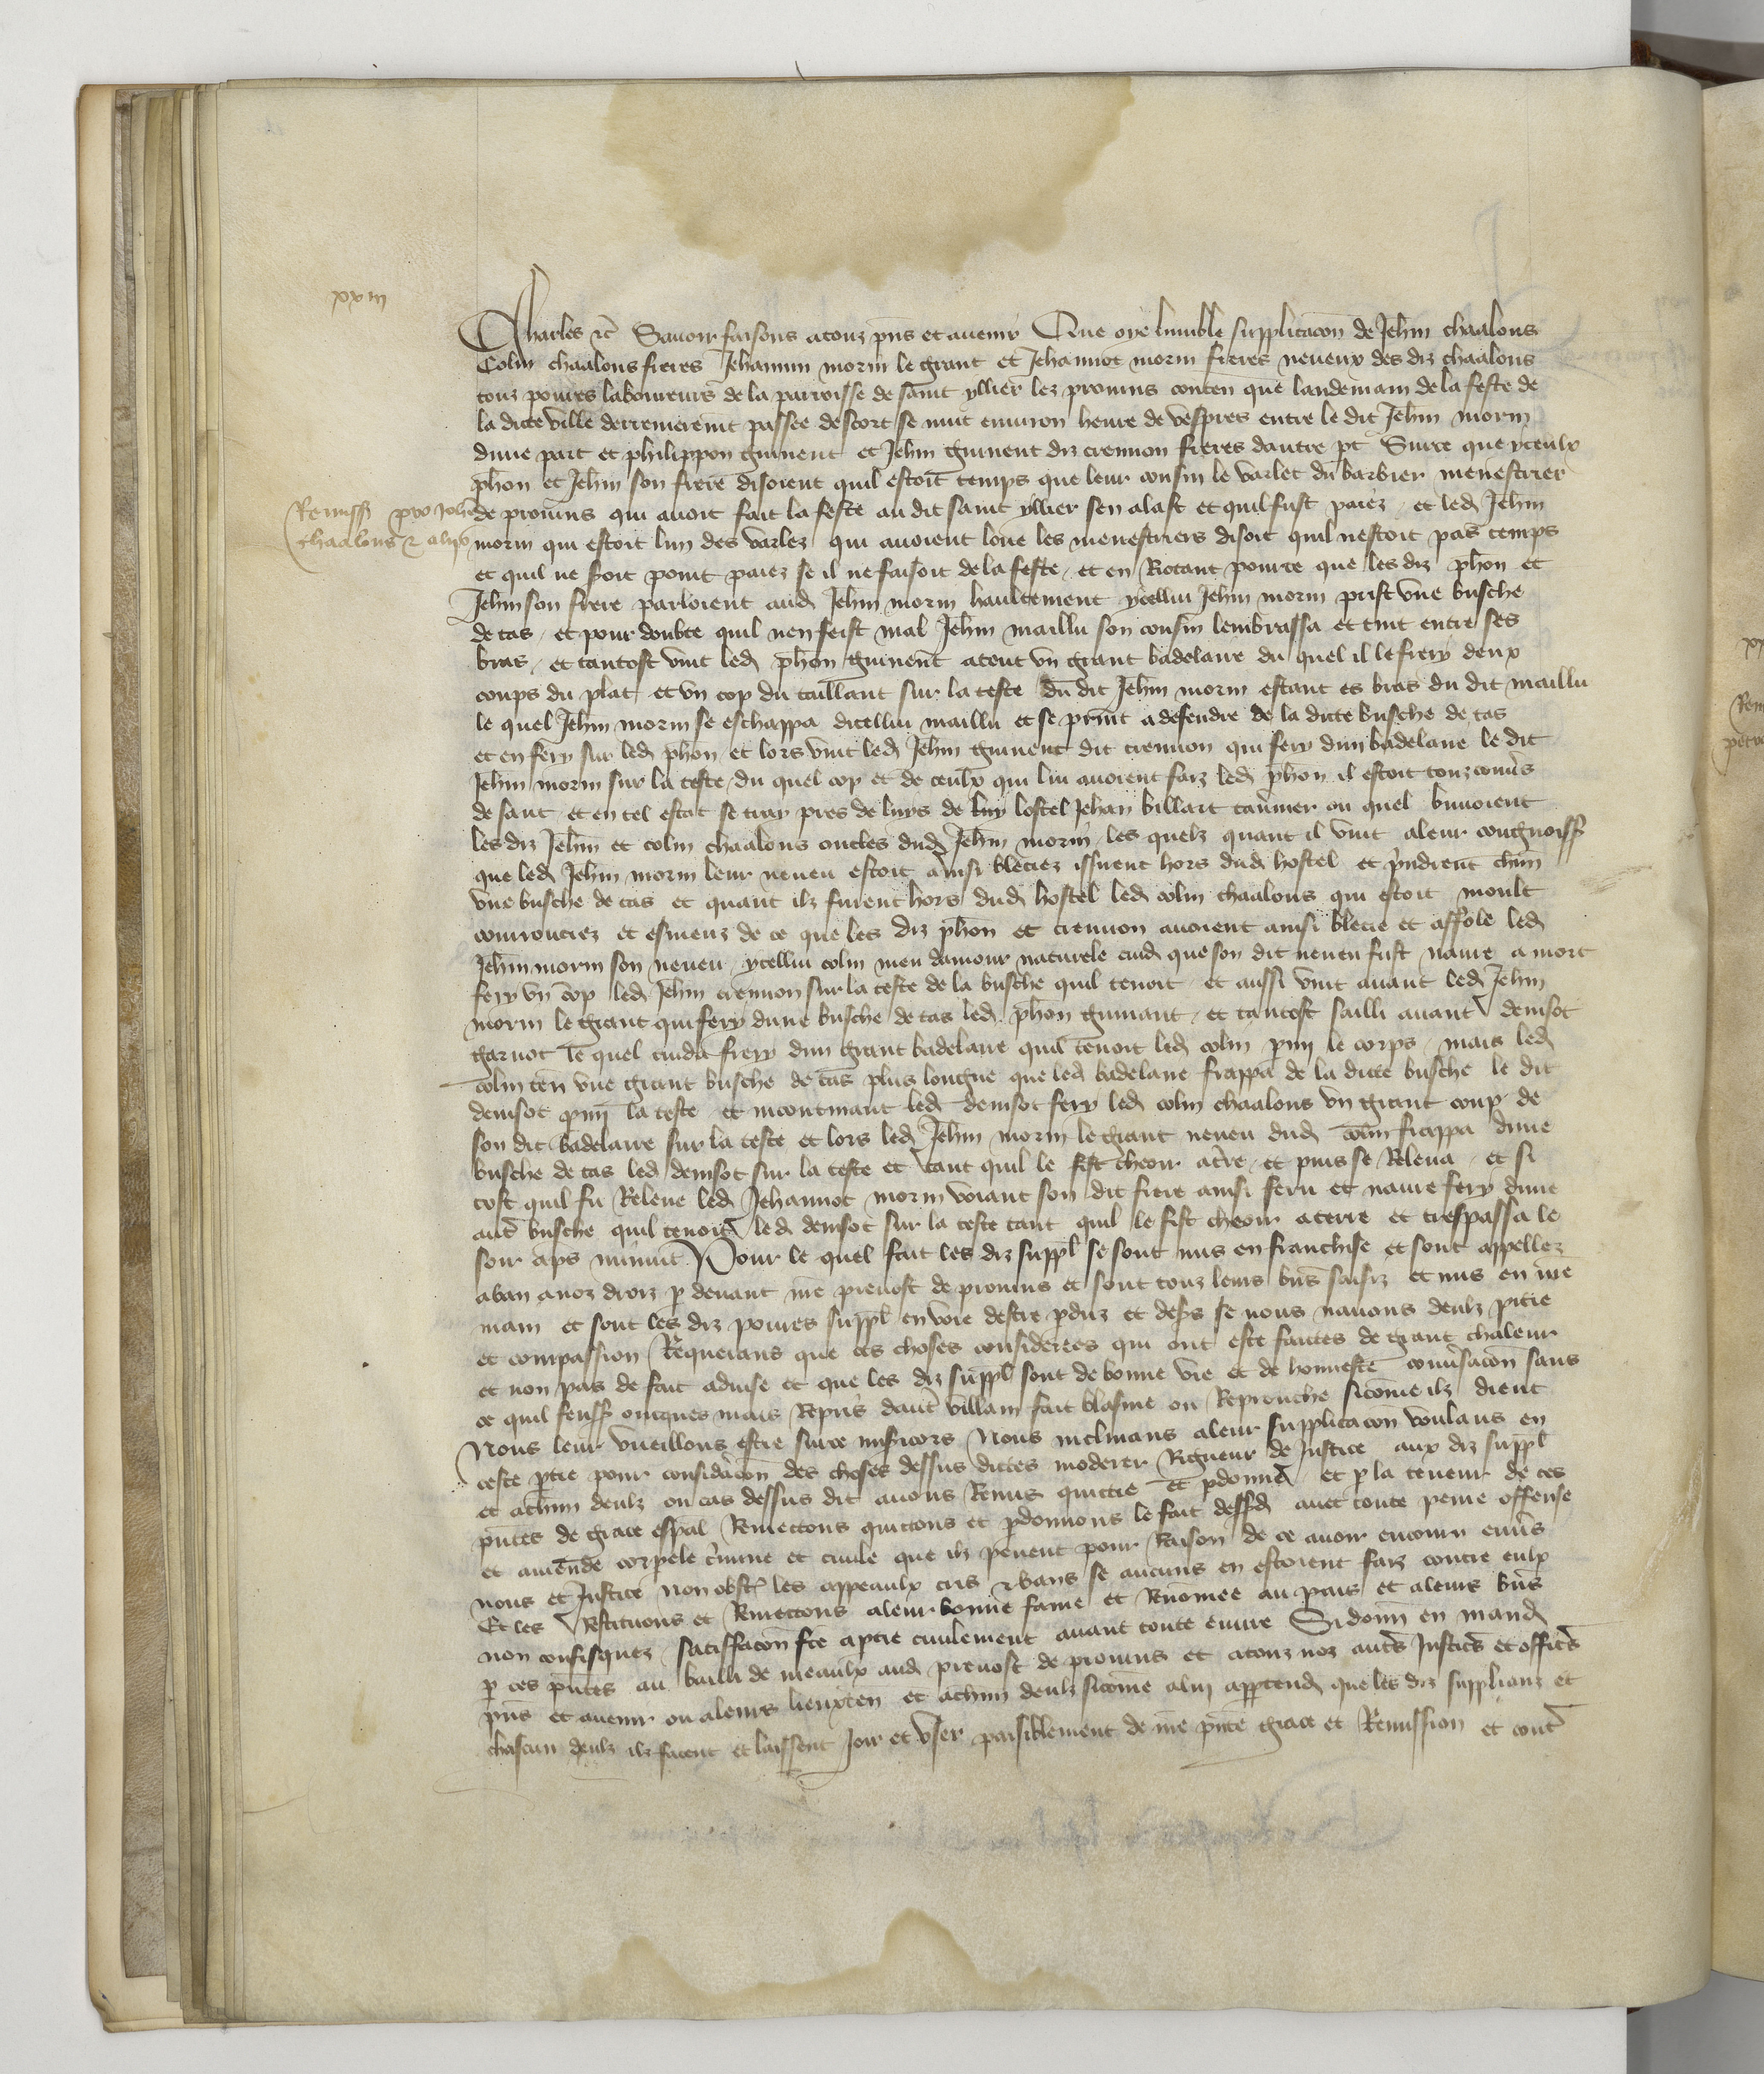 xxiii
Charles etc̃ Savoir faisons a touz pñs et avenir Que oye lumble supplicac̃on de Jehñ chaalons
Colin chaalons freres Jehannin morin le grant et Jehannot morin freres neveux des diz chaalons
touz povres laboureurs de la parroisse de saint yllier lez provins conten̄ que landemain de la feste de
la dicte ville derrenieremt̃ passee descort se mut environ heure de vespres entre le dit Jehñ morin
dune part et philippon guinent et Jehñ guinent diz crennon freres dautre pt̃ Surce que yceulx
ph̃on et Jehñ son frere disoient quil estoit temps que leur cousin le varlet du barbier menestrier
Remiss̃ pro Joh̃e
chaalons et aliis
de provins qui avoit fait la feste au dit saint yllier sen alast et quil fust paiez et led̃ Jehñ
morin qui estoit lun des varlez qui avoient loue les menestriers disoit quil nestoit pas temps
et quil ne s̃oit point paiez se il ne faisoit de la feste et en Rotant pource que les diz ph̃on et
Jehñ son frere parloient aud̃ Jehñ morin haultement ycellui Jehñ morin prist une busche
de tas et pour doubte quil nen feist mal Jehñ maillu son cousin lembrassa et tint entre ses
bras et tantost vint led̃ ph̃on guinent atout un grant badelaire du quel il le frery deux
coups du plat et un cop du taillant sur la teste du dit Jehñ morin estant es bras du dit maillu
le quel Jehñ morin se eschappa dicellui maillu et se print a defendre de la dicte busche de tas
et en fery sur led̃ ph̃on et lors vint led̃ Jehñ guinent dit crennon qui fery dun badelaire le dit
Jehñ morin sur la teste du quel cop et de ceulx qui lui avoient faiz led̃ ph̃on il estoit touz couv̾s
de sant et en tel estat se tray pres de luys de luy lostel Jehan billart tav̾nier ou quel buvoient
les diz Jehñ et colin chaalons oncles dud̃ Jehñ morin les quelz quant il vint a leur congnoiss̃
que led̃ Jehñ morin leur neveu estoit ainsi bleciez issirent hors dud̃ hostel et p̾ndrent chũn
une busche de tas et quant ilz furent hors dud̃ hostel led̃ colin chaalons qui estoit moult
courrouciez et esmeuz de ce que les diz ph̃on et crennon avoient ainsi blecie et affole led̃
Jehñ morin son neveu ycellui colin meu damour naturele cuid̃ que son dit neveu fust navre a mort
fery un cop led̃ Jehñ crennon sur la teste de la busche quil tenoit et aussi vint avant led̃ Jehñ
morin le grant qui fery dune busche de tas led̃ ph̃on guinant et tantost sailli avant denisot
garnot le quel cuida frery dun grant badelaire quil tenoit led̃ colin p̱mi le corps mais led̃
colin ten̄ une grant busche de tas plus longue que led̃ badelaire frappa de la dicte busche le dit
denisot p̱mi la teste et incontinant led̃ denisot fery led̃ colin chaalons un grant coup de
son dit badelaire sur la teste et lors led̃ Jehñ morin le grant neveu dud̃ colin frappa dune
busche de tas led̃ denisot sur la teste et tant quil le fist cheoir at̃re et puis se Releva et si
tost quil fu Releve led̃ Jehannot morin voiant son dit frere ainsi feru et navre fery dune
aut̃ busche quil tenoit led̃ denisot sur la teste tant quil le fist cheoir a terre et trespassa le
soir ap̃s minuit Pour le quel fait les diz suppl̃ se sont mis en franchise et sont appellez
a ban a noz droiz p̱ devant n̄re prevost de provins et sont touz leurs bn̄s saisiz et mis en n̄re
main et sont les diz povres suppl̃ en voie destre p̱duz et des̾s se nous navons deulz pitie
et compassion Requerans que ces choses considerees qui ont este faictes de grant chaleur
et non pas de fait advise et que les diz suppl̃ sont de bonne vie et de honneste conv̾sac̃on sans
ce quil feuss̃ oncques mais Repris daut̃ villain fait blasme ou Reprouche sicom̃e ilz dient
Nous leur vueillons estre surce mis̾icors Nous inclinans a leur supplicac̃on voulans en
ceste p̱tie pour considac̃on des choses dessus dictes moderer Rigueur de Justice aux diz suppl̃
et a chũn deulz ou cas dessus dit avons Remis quictie et p̱donne et p̱ la teneur de ces
p̃ntes de grace esp̃al Remettons quictons et p̱donnons le fait dessusd̃ avec toute peine offense
et amende corp̱ele c̾mine et civile que ilz pevent pour Raison de ce avoir encouru env̾s
nous et Justice non obst̃ les appeaulx cris et bans se aucuns en estoient faiz contre eulx
Et les Restituons et Remettons a leur bonne fame et Renom̃ee au pais et a leurs bn̄s
non confisquez satisfac̃on fc̃e a p̱tie civilement avant toute euvre Si donñ en mand̃
p̱ ces p̃ntes au bailli de meaulx aud̃ prevost de provins et a touz noz aut̃s Justic̃s et offic̃s
p̃ns et avenir ou a leurs lieuxten̄ et a chũn deulz sicom̃e a lui app̱tend̃ que les diz supplianz et
chascun deulz ilz facent et laissent Joir et user paisiblement de n̄re p̃nte grace et Remission et cont̃